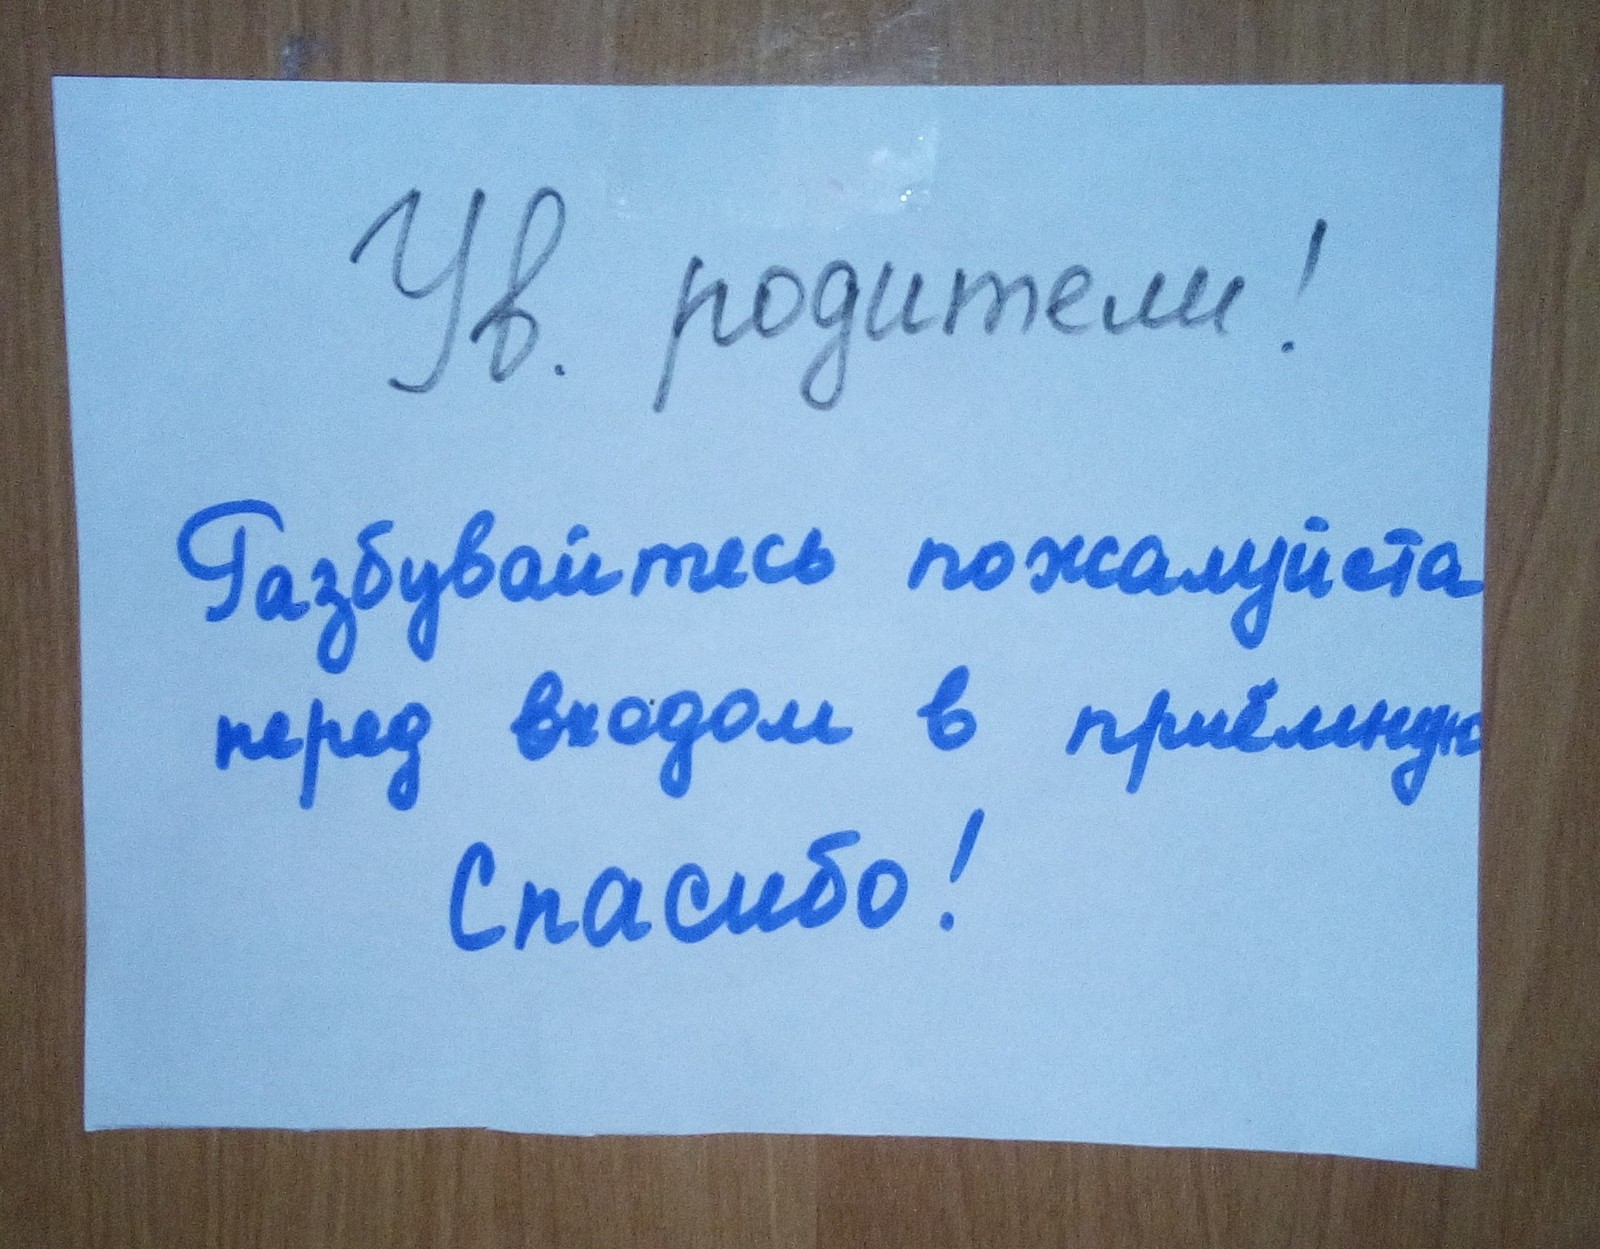 Ув. родители!
Разбувайтесь пожалуйста
перед входом в приёмную
Спасибо!